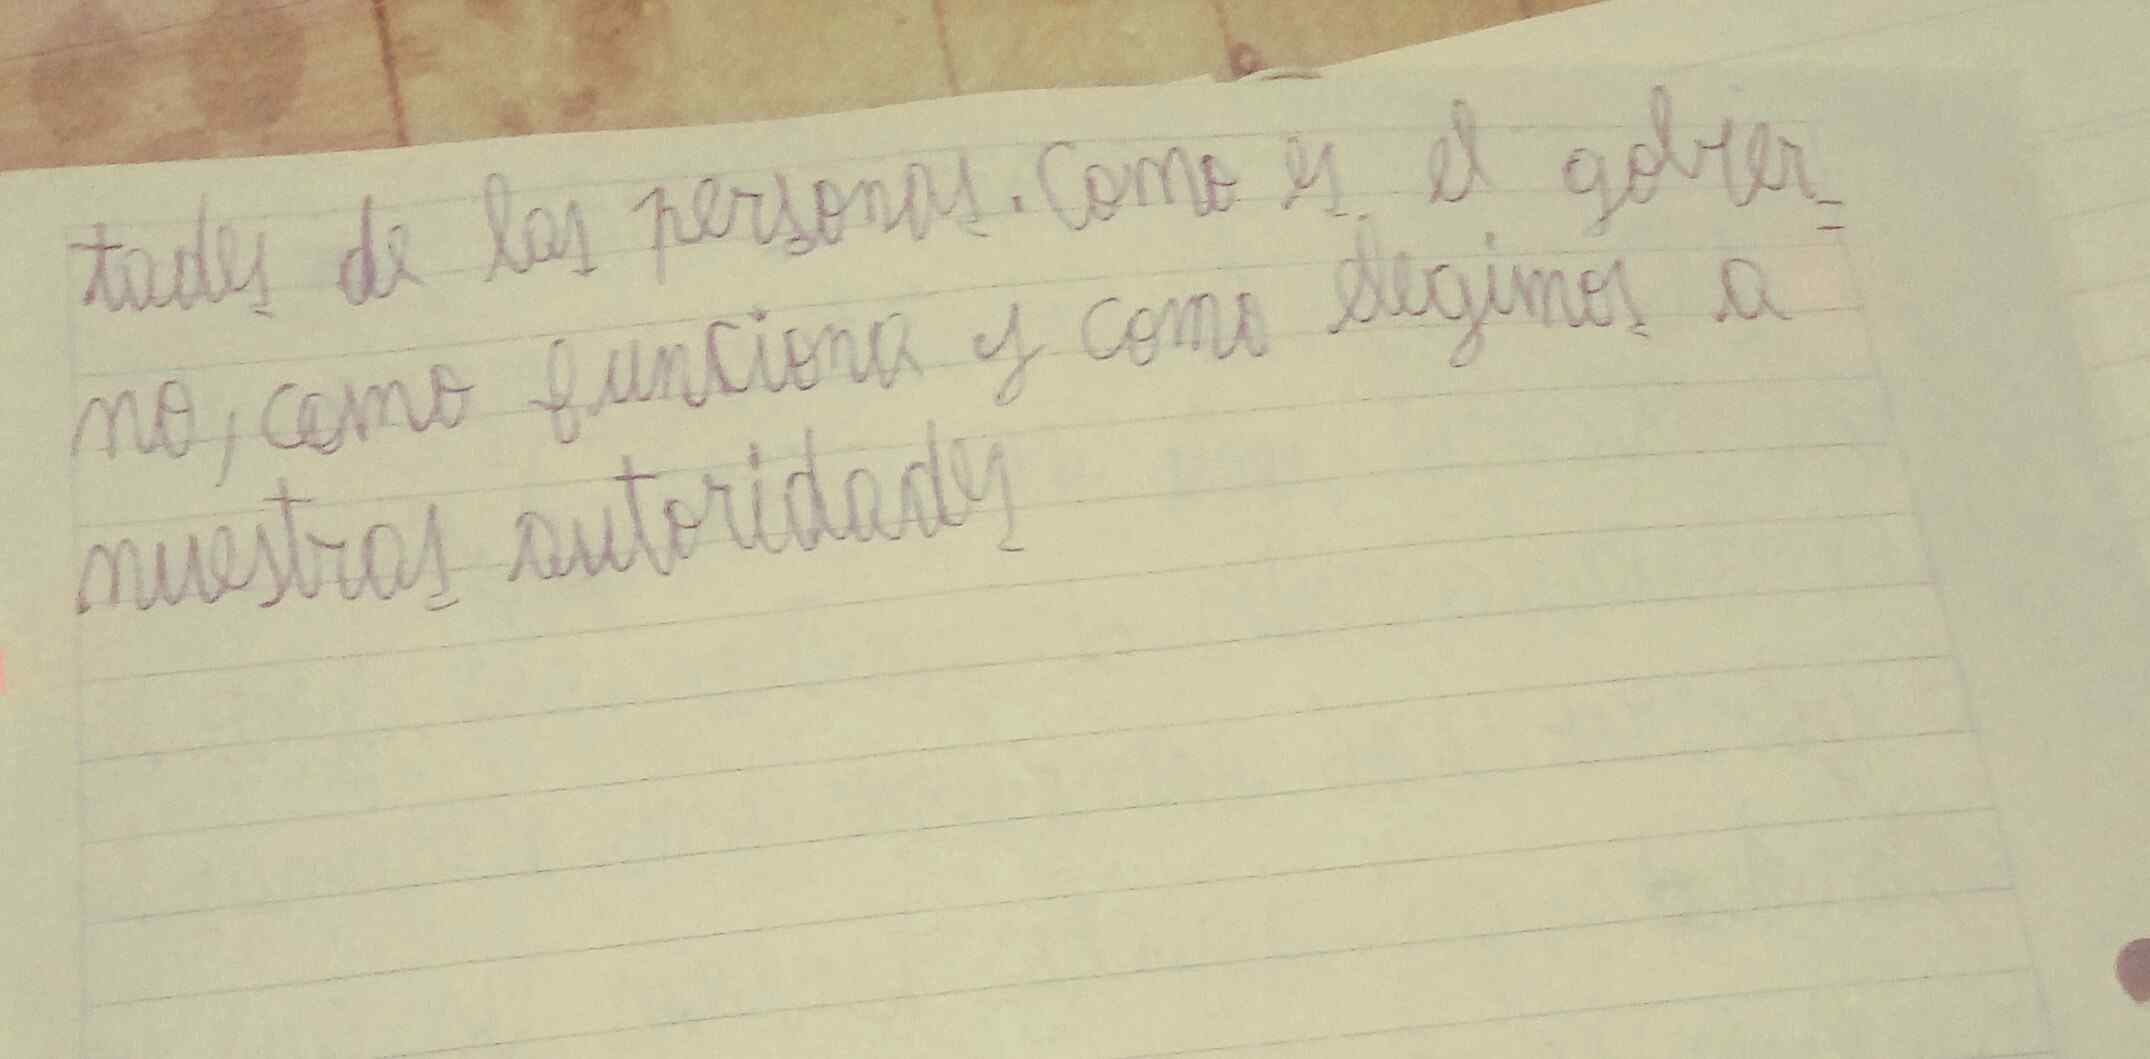 tades de las personas. Como es el gobier=
no, como funciona y como elegimos a
nuestras autoridades